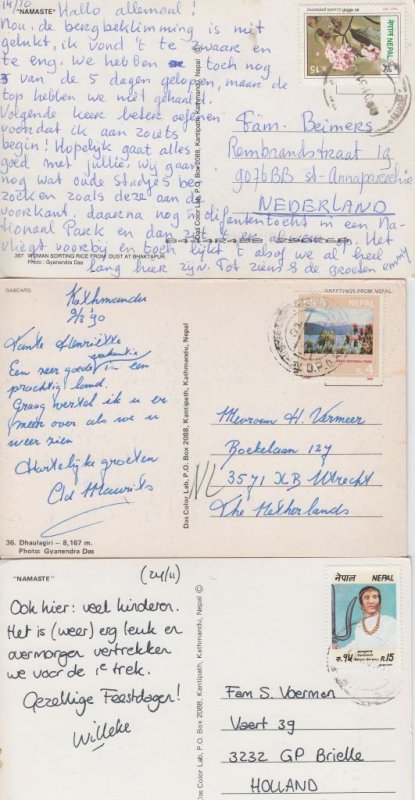 14/10
"NAMASTE"
Hallo allemaal!
Nou, de bergbeklimming is niet
gelukt, ik vond 't te zwaar en
te eng. We hebben toch nog
5 van de 5 dagen gelopen, maar de
top hebben we niet gehaald.
Volgende keer beter oefenen
voordat ik aan zoiets
begin! Hopelijk gaat alles
goed met jullie. Wij gaan
nog wat oude stadjes be
zoeken zoals deze aan de
voorkant, daarna nog 'n olifantentocht in een Na-
tionaal Park en dan
vliegt voorbij en toch lijkt 't alsof we al heel
lang hier zijn. Tot ziens & de groeten emmy
367 WOMAN SORTING RICE FROM DUST AT BHAKTAPUR.
Photo : Gyanendra Das
Das Color Lab, P.O. Box 2088, Kantipath, Kathmandu, Nepal ©
नेपाल NEPAL
रु.१५ R.15
Fam. Beimers
Rembrandstraat 19
9076BB St-Annaparochie
NEDERLAND
DASCARD.
GREETINGS FROM NEPAL.
Kathmandu
9/3 '90
Tante Henriëtte
Een zeer goede vakantie in een
prachtig land.
Graag vertel ik u er
meer over als we u
weer zien
Hartelijke groeten
36. Dhaulagiri – 8,167 m.
Photo: Gyanendra Das
Das Color Lab, P.O. Box 2088, Kantipath, Kathmandu, Nepal
NEPAL
RARA NATIONAL PARK
4
G.P.O.
NL
Mevrouw H. Vermeer
Boekelaan 127
3571 XB Utrecht
The Netherlands
"NAMASTE"
(24/11)
Ook hier: veel kinderen.
Het is (weer) erg leuk en
overmorgen vertrekken
we voor de 1e trek.
Gezellige Feestdagen!
Willeke
Das Color Lab, P.O. Box 2088, Kantipath, Kathmandu, Nepal ©
नेपाल NEPAL
रु.१५ R.15
Fam S. Voermen
Vaert 39
3232 GP Brielle
HOLLAND